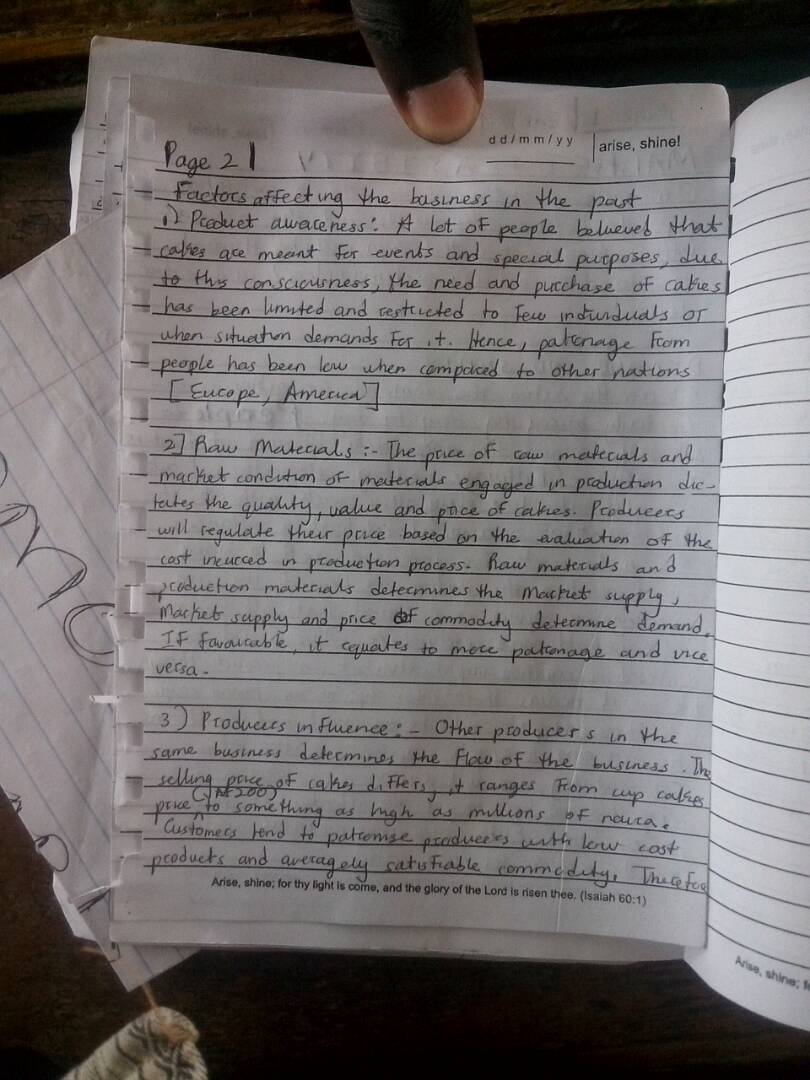 dd/mm/yy
arise, shine!
Page 2
Factors affecting the business in the past
1) Product awareness: A lot of people believed that
cakes are meant for events and special purposes, due
to this consciousness, the need and purchase of cakes
has been limited and restricted to few individuals or
when situation demands for it. Hence, patronage from
people has been low when compared to other nations
[Europe, America]
2] Raw Materials :- The price of raw materials and
market condition of materials engaged in production dic-
tates the quality, value and price of cakes. Producers
will regulate their price based on the evaluation of the
cost incurred in production process. Raw materials and
production materials determines the market supply,
Market supply and price of commodity determine demand.
If favourable, it equates to more patronage and vice
versa.
3) Producers influence :- Other producers in the
same business determines the flow of the business. The
selling price of cakes differs, it ranges from cup cakes
price (₦200) to something as high as millions of naira.
Customers tend to patronise producers with low cost
products and averagely satisfiable commodity. Therefor
Arise, shine; for thy light is come, and the glory of the Lord is risen thee. (Isaiah 60:1)
Arise, shine; f